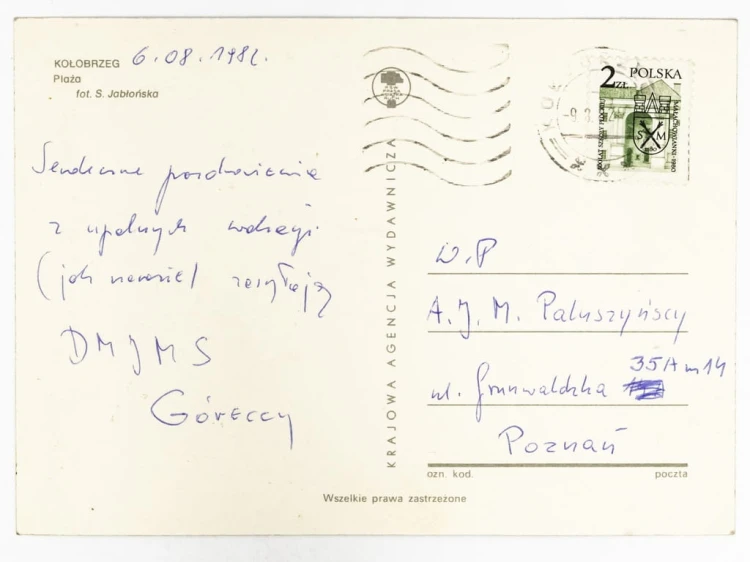 KOŁOBRZEG 6.08.1982.
Plaża
fot. S. Jabłońska
Serdeczne pozdrowienia
z upalnych wakacji
(jak narazie) zasyłają
DMJMS
GÓRECCY
KRAJOWA AGENCJA WYDAWNICZA
2 ZŁ POLSKA
S M
1580
MAŁACHOWIANKI-1980
W.P
A. J. M. Paluszyńscy
ul. Grunwaldzka 35A m 14
Poznań
ozn. kod. poczta
Wszelkie prawa zastrzeżone